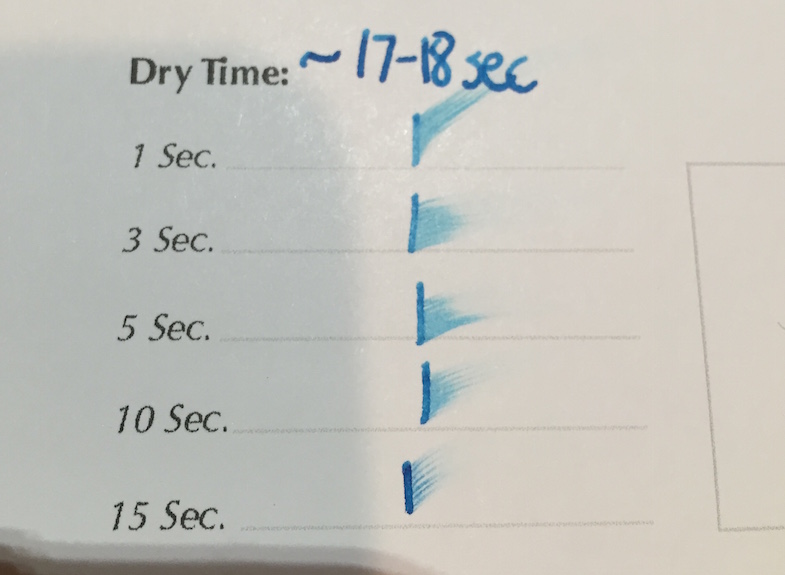 Dry Time: ~17-18 sec
1 Sec.
3 Sec.
5 Sec.
10 Sec.
15 Sec.